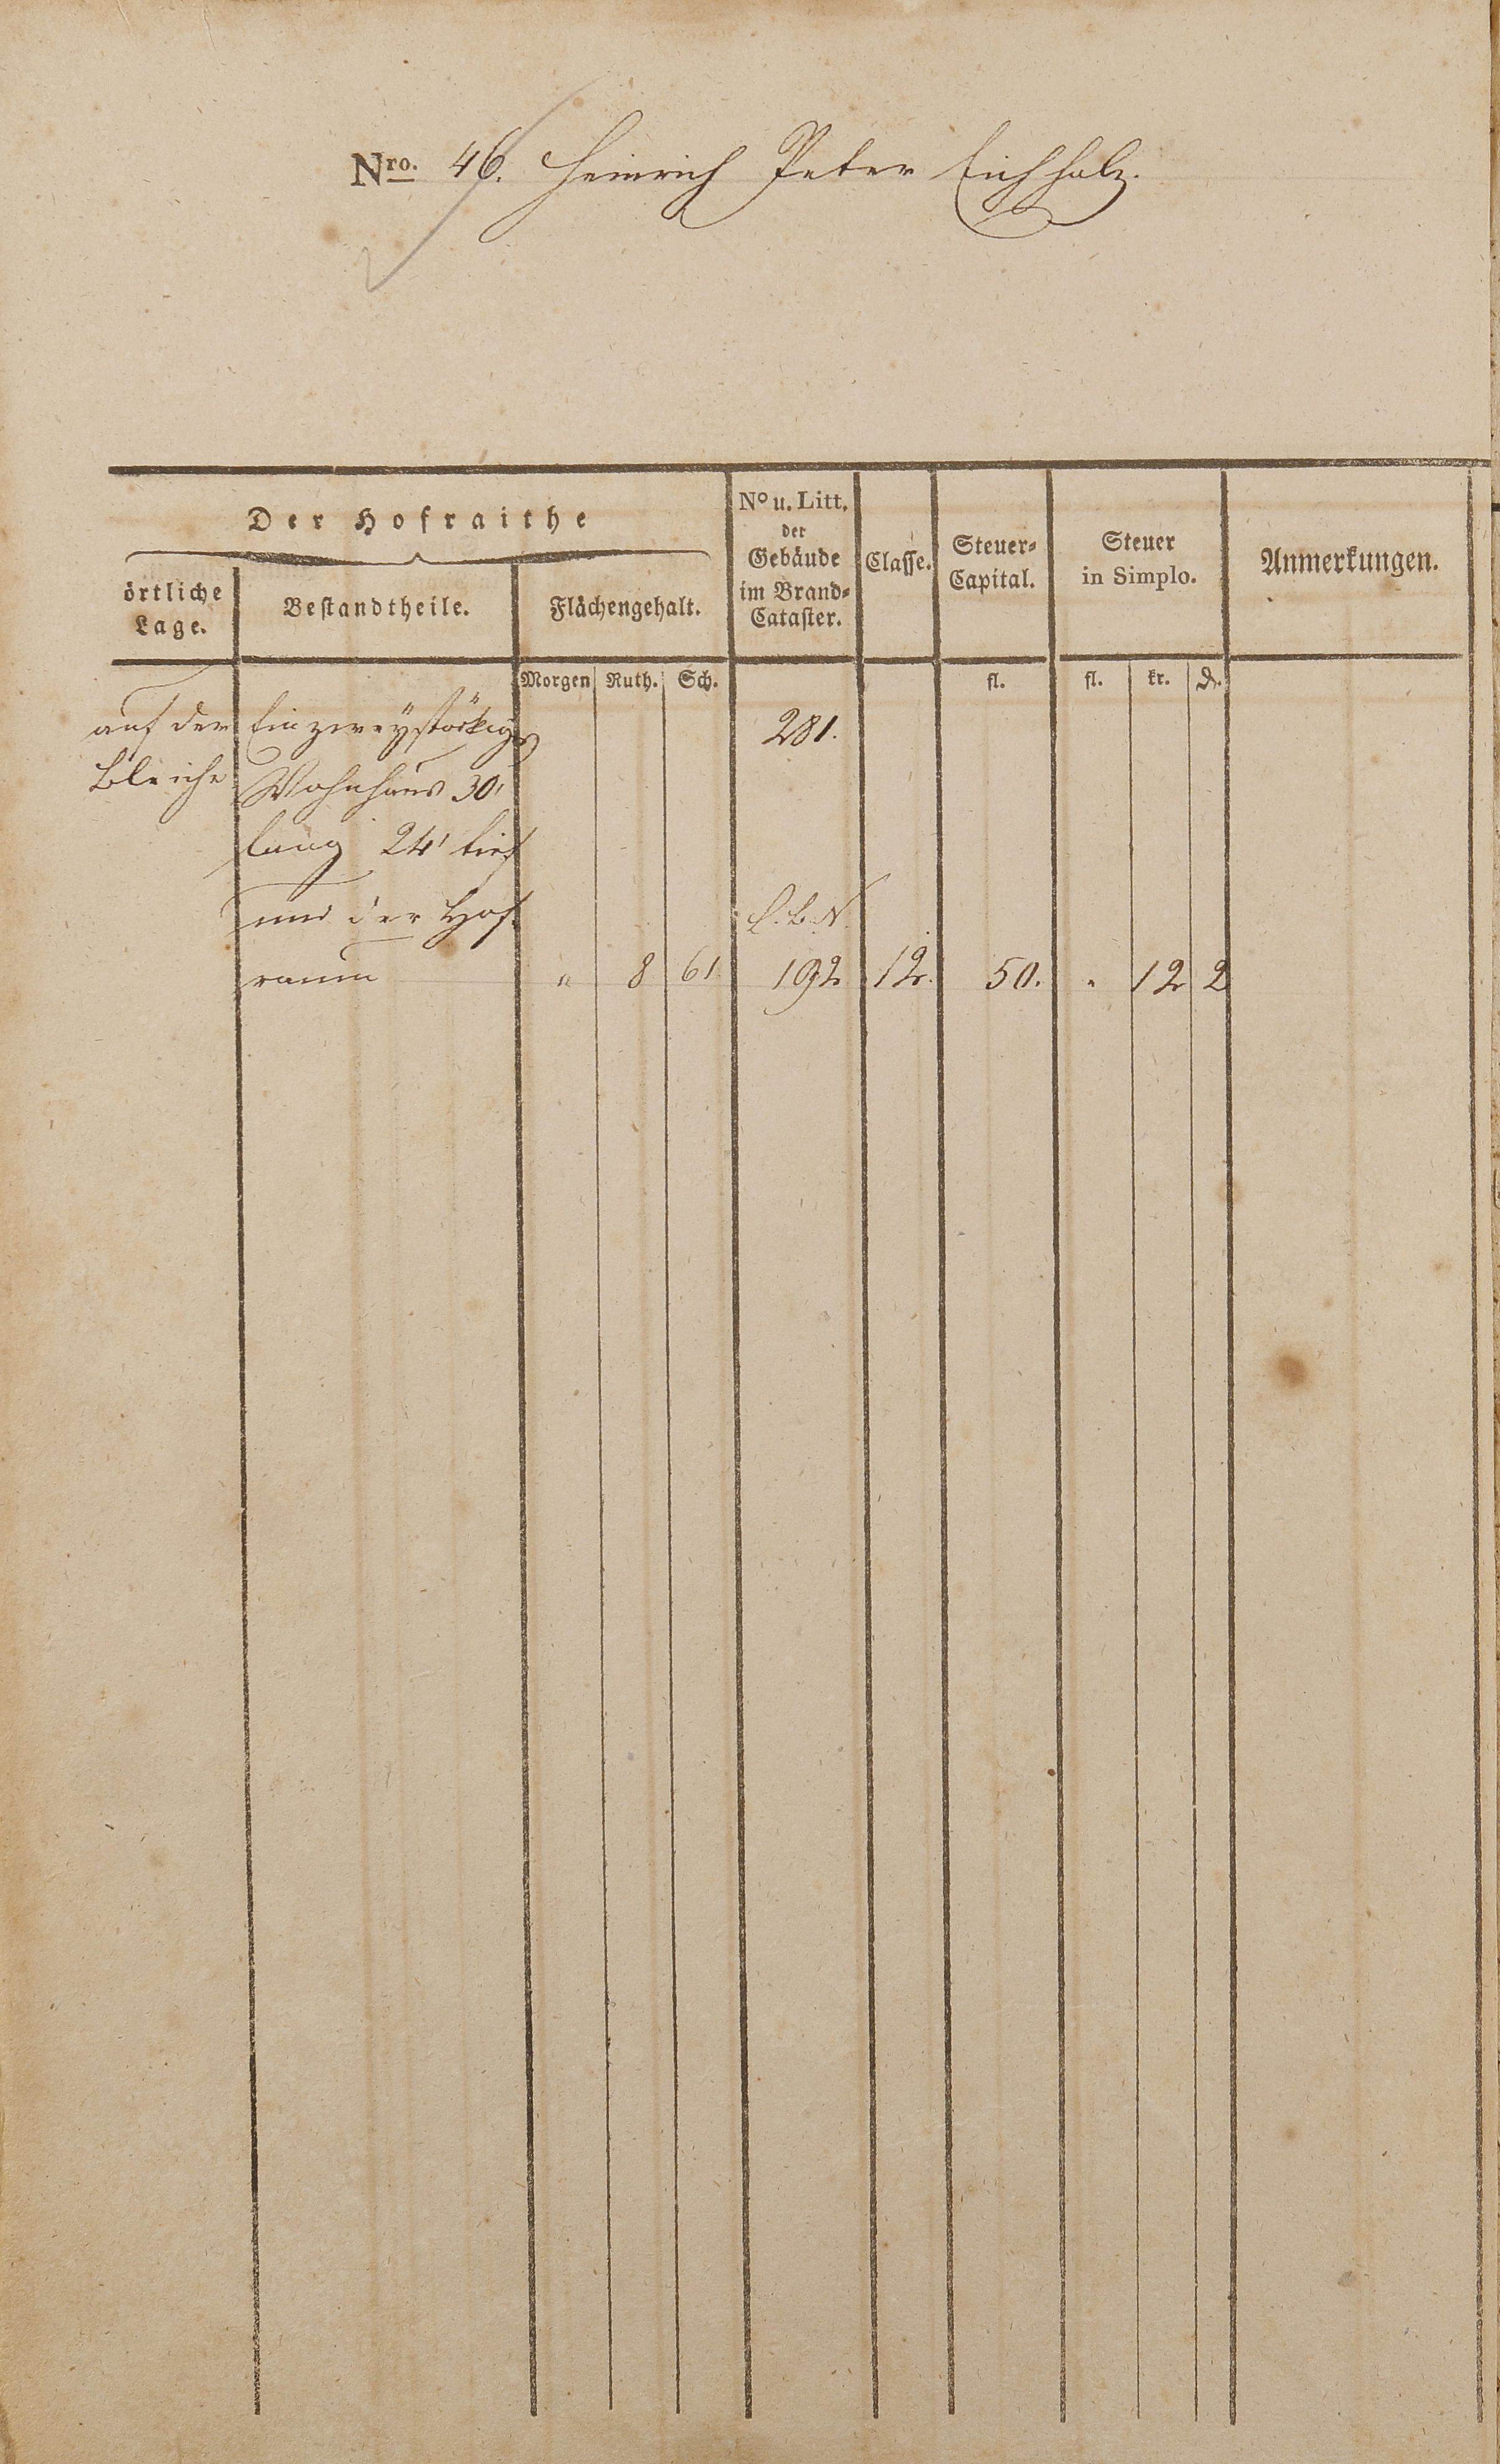 Nro. 46. Heinrich Peter Eichholz.
Der Hofraithe
No u. Litt.
der
Gebäude
im Brand-
Cataster.
Classe.
Steuer-
Capital.
Steuer
in Simplo.
Anmerkungen.
örtliche
Lage.
Bestandtheile.
Flächengehalt.
Morgen Ruth. Sch. fl. fl. kr. d.
auf der Ein zweystöckiges 281.
Bleiche Wohnhaus 30'
lang 24' tief
und der Hof-
raum " 8 61. 192 12. 50. " 12 2